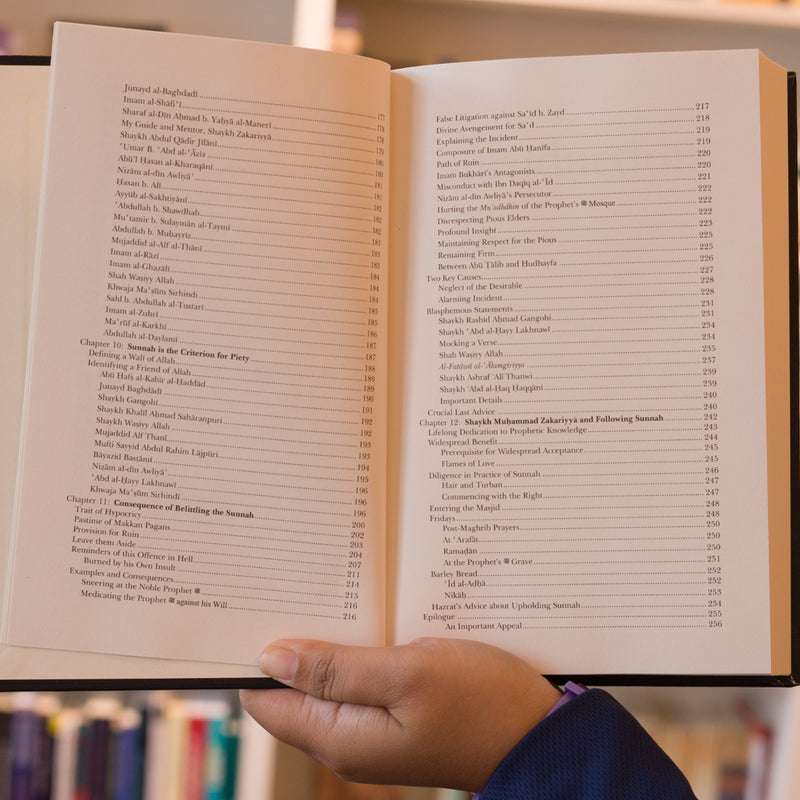 Junayd al-Baghdadī 177
Imam al-Shāfiʿī 178
Sharaf al-Dīn Aḥmad b. Yaḥyā al-Manerī 178
My Guide and Mentor, Shaykh Zakariyyā 179
Shaykh Abdul Qādir Jīlānī 180
ʿUmar B. ʿAbd al-ʿĀzīz 180
Abū'l Ḥasan al-Kharaqānī 181
Niẓām al-dīn Awliyāʾ 181
Ḥasan b. Alī 182
Ayyūb al-Sakhtiyānī 182
ʿAbdullah b. Shawdhab 182
Muʿtamir b. Sulaymān al-Taymī 183
Abdullah b. Muḥayrīz 183
Mujaddid al-Alf al-Thānī 183
Imam al-Rāzī 184
Imam al-Ghazāli 184
Shah Waṣiyy Allah 184
Khwaja Maʿṣūm Sirhindī 185
Sahl b. Abdullah al-Tustarī 185
Imam al-Zuhrī 186
Maʿrūf al-Karkhī 187
Abdullah al-Daylamī 187
Chapter 10: Sunnah is the Criterion for Piety 188
Defining a Walī of Allah 189
Identifying a Friend of Allah 189
Abū Ḥafṣ al-Kabīr al-Ḥaddād 190
Junayd Baghdādī 191
Shaykh Gangohī 192
Shaykh Khalīl Aḥmad Sahāranpuri 192
Shaykh Waṣiyy Allah 193
Mujaddid Alf Thanī 193
Mufti Sayyid Abdul Rahim Lājpūri 194
Bāyazid Basṭāmī 195
Niẓām al-dīn Awliyāʾ 196
ʿAbd al-Ḥayy Lakhnawī 196
Khwaja Maʿṣūm Sirhindī 196
Chapter 11: Consequence of Belittling the Sunnah 200
Trait of Hypocrisy 202
Pastime of Makkan Pagans 203
Provision for Ruin 204
Leave them Aside 207
Reminders of this Offence in Hell 211
Burned by his Own Insult 214
Examples and Consequences 215
Sneering at the Noble Prophet ﷺ 216
Medicating the Prophet ﷺ against his Will 216
False Litigation against Saʿīd b. Zayd 217
Divine Avengement for Saʿd 218
Explaining the Incident 219
Composure of Imam Abū Ḥanīfa 219
Path of Ruin 220
Imam Bukhārī's Antagonists 220
Misconduct with Ibn Daqīq al-ʿĪd 221
Niẓām al-dīn Awliyā's Persecutor 222
Hurting the Muʾadhdhin of the Prophet's ﷺ Mosque 222
Disrespecting Pious Elders 222
Profound Insight 223
Maintaining Respect for the Pious 225
Remaining Firm 225
Between Abū Ṭālib and Hudhayfa 226
Two Key Causes 227
Neglect of the Desirable 228
Alarming Incident 228
Blasphemous Statements 231
Shaykh Rashīd Aḥmad Gangohī 231
Shaykh ʿAbd al-Ḥayy Lakhnawī 234
Mocking a Verse 234
Shah Waṣiyy Allah 235
Al-Fatāwā al-ʿĀlamgīriyya 237
Shaykh Ashraf ʿAlī Thanwi 239
Shaykh ʿAbd al-Haq Haqqānī 239
Important Details 240
Crucial Last Advice 240
Chapter 12: Shaykh Muhammad Zakariyyā and Following Sunnah 242
Lifelong Dedication to Prophetic Knowledge 243
Widespread Benefit 244
Prerequisite for Widespread Acceptance 245
Flames of Love 245
Diligence in Practice of Sunnah 246
Hair and Turban 247
Commencing with the Right 247
Entering the Masjid 248
Fridays 248
Post-Maghrib Prayers 250
At ʿArafāt 250
Ramaḍān 250
At the Prophet's ﷺ Grave 251
Barley Bread 252
ʿĪd al-Aḍḥā 252
Nikāḥ 253
Hazrat's Advice about Upholding Sunnah 254
Epilogue 255
An Important Appeal 256